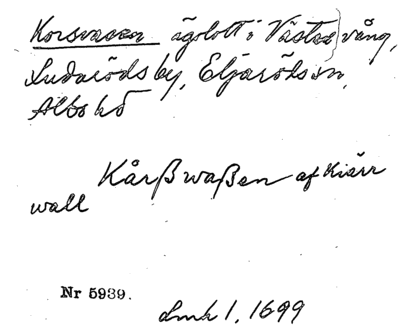 Korsvasen ägolott i Västra vång,
Ludaröds by, Eljaröds sn,
Albo hd
Kårßwaßen af Kiärr
wall
Nr 5939.
Lmh 1, 1699